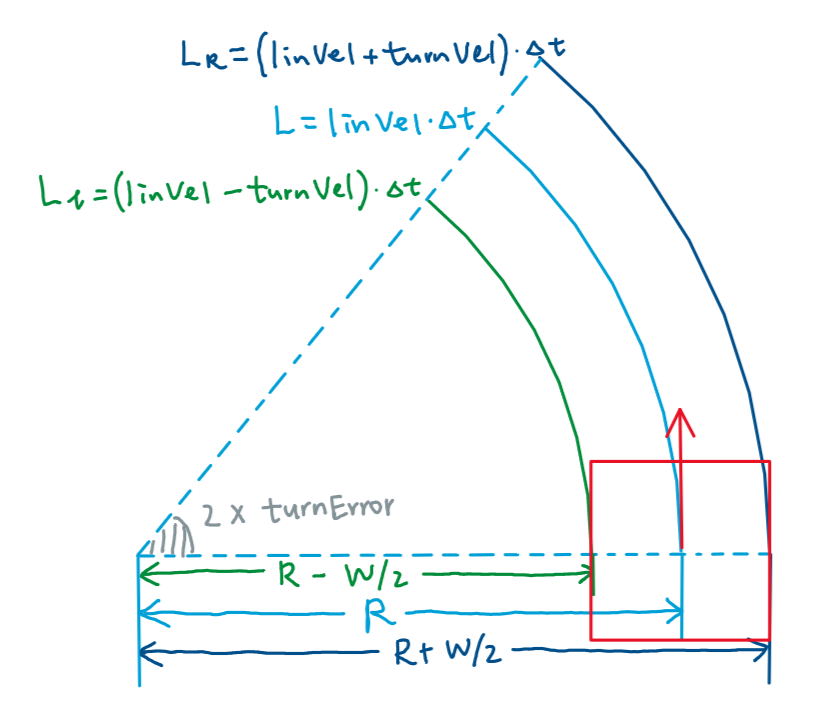 L_R = (linVel + turnVel) · Δt
L = linVel · Δt
L_l = (linVel - turnVel) · Δt
2 x turnError
R - W/2
R
R + W/2